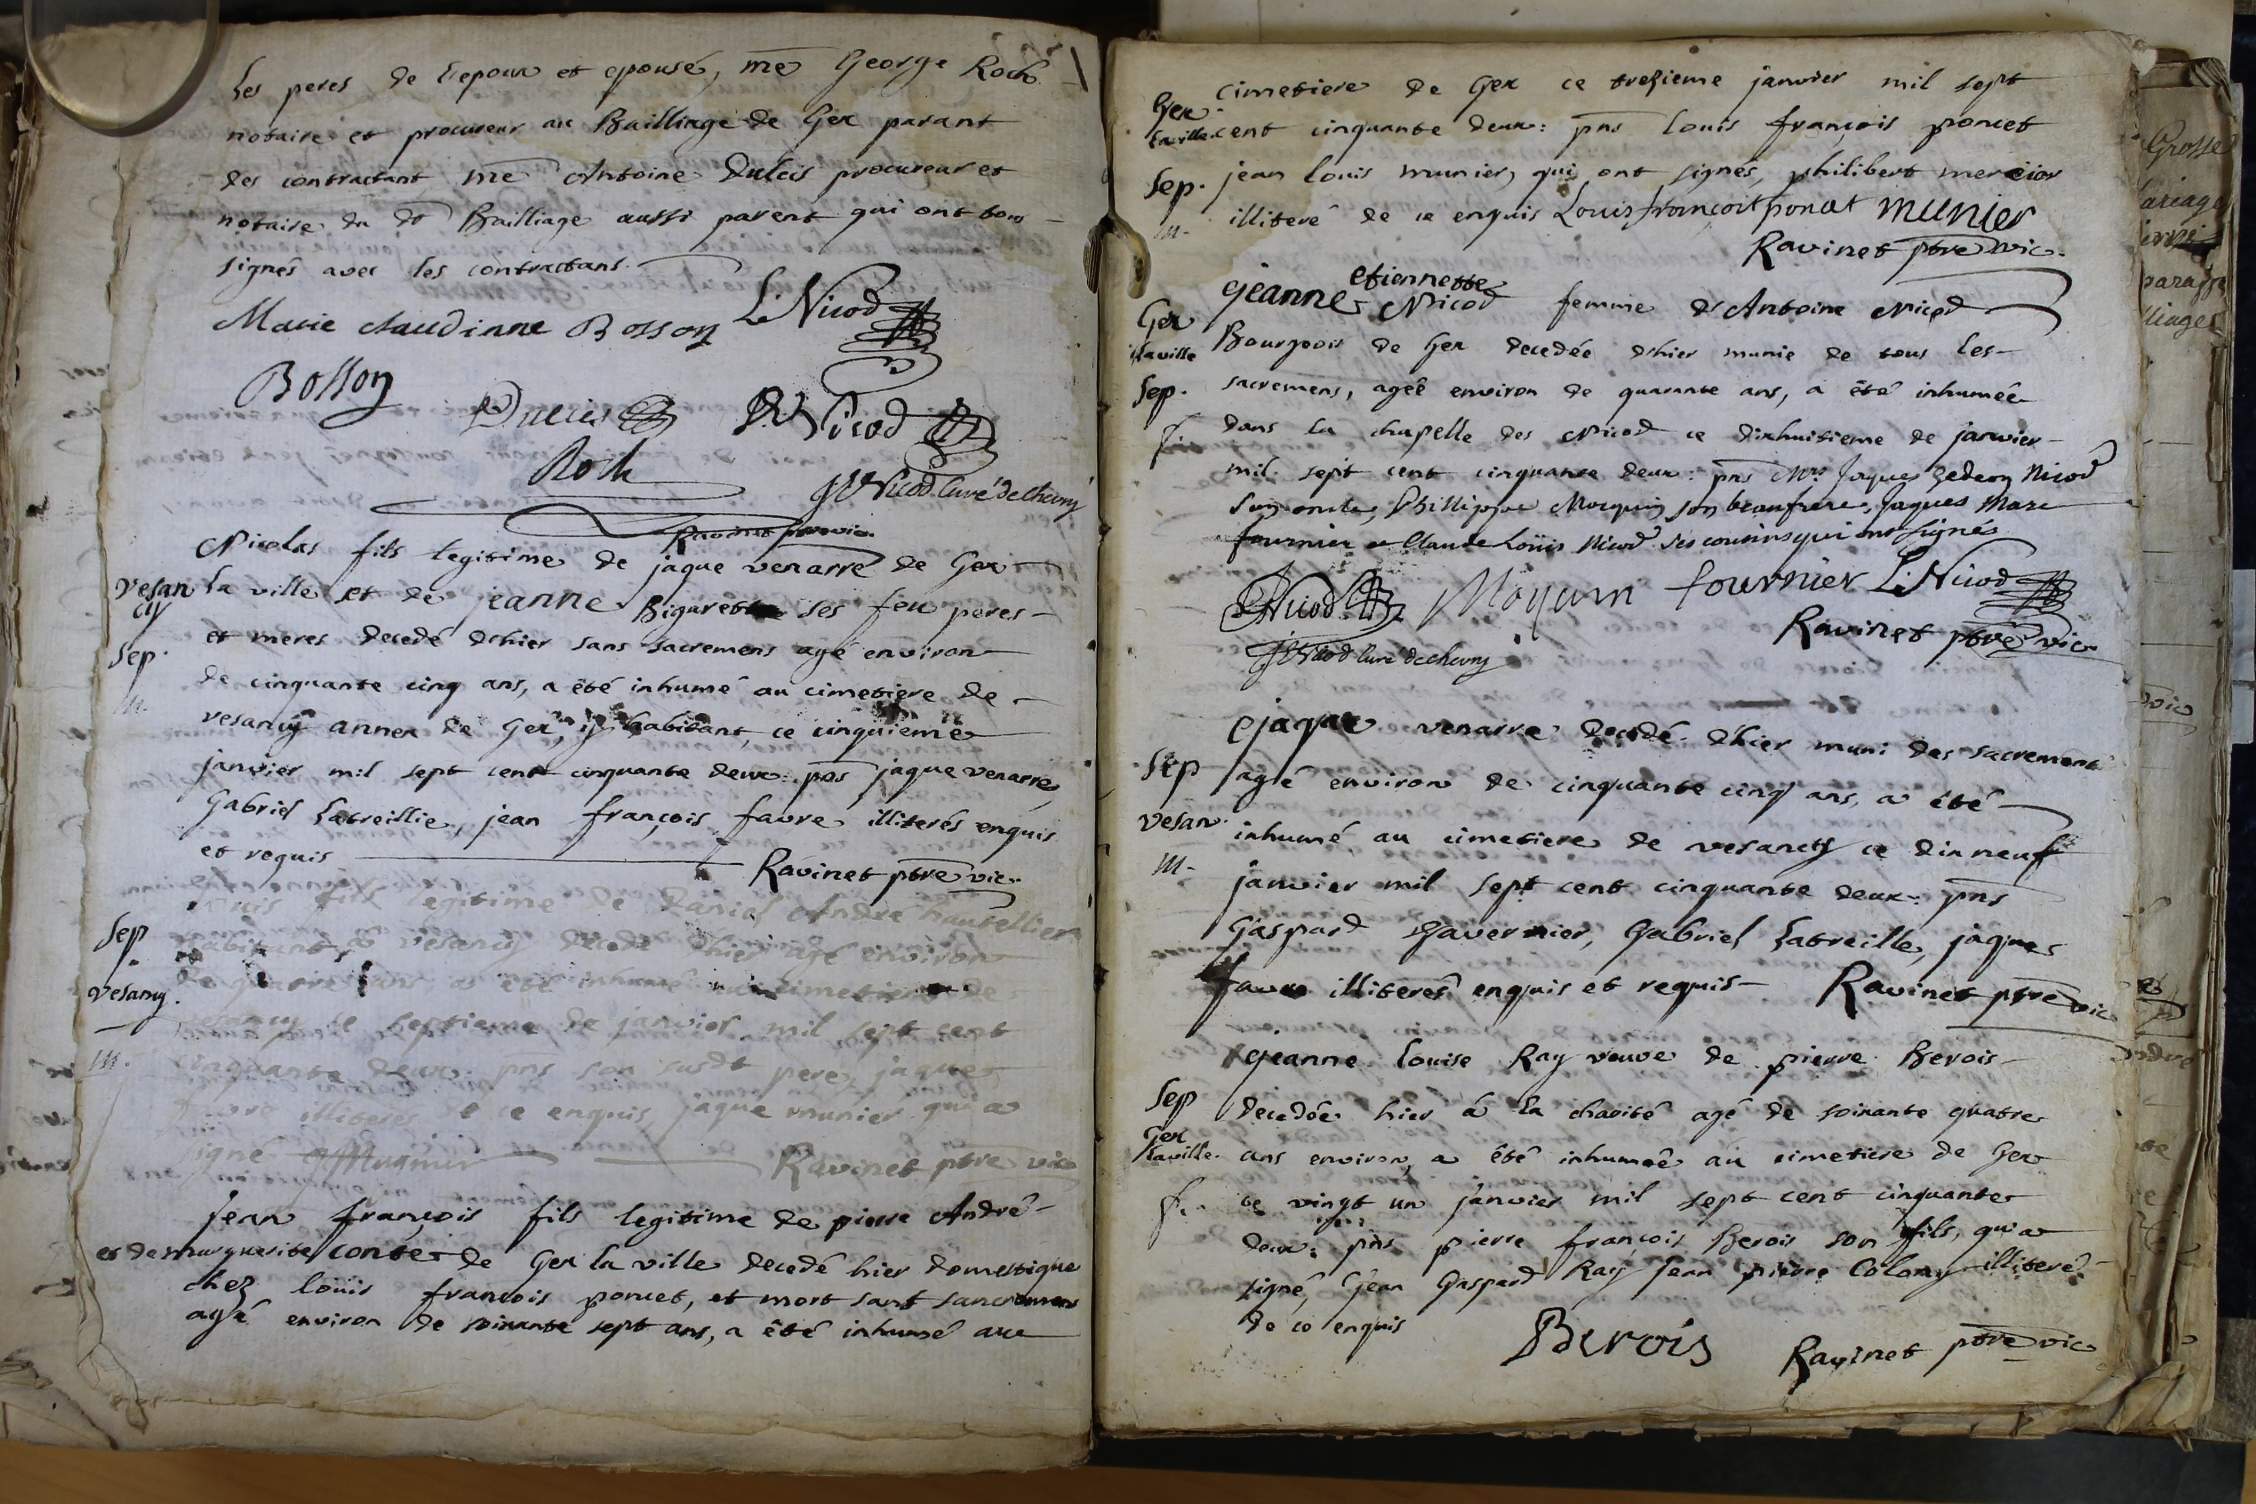 les peres de l'epoux et epousé, me George Roch
notaire et procureur au Bailliage de Gex parant
des contractant me Antoine Dulcis procureur et
notaire du dt Bailliage aussi parent qui ont tous
signés avec les contractans.
Marie claudinne Bosson L. Nicod
Bosson
Nicod
Roch
Nicod Curé de chevry
Ravinet ptre vic.
Nicolas fils legitime de jaque venarre de Gex
Vesancy
la ville et de jeanne Biguret ses feu peres
Sep.
et meres decedé dhier sans sacremens agé environ
de cinquante cinq ans, a été inhumé au cimetiere de
m.
vesancy annex de Gex, y habitant, ce cinquieme
janvier mil sept cent cinquante deux: pns jaque venarre,
Gabriel Latreillie, jean françois favre illiterés enquis
et requis Ravinet ptre vic.
fils legitime de Daniel André hautellier
Sep.
habitant a vesancy decedé dhier agé environ
de ans a été inhumé au cimetiere de
Vesancy.
vesancy le septieme de janvier mil sept cent
m.
cinquante deux: pns son susdt pere, jaques
favre illiterés de ce enquis, jaque munier qui a
signé Munier Ravinet ptre vic
jean françois fils legitime de pierre André
et de marguerite conte de Gex la ville decedé hier domestique
chez loüis françois poncet, et mort sant sancremens
agé environ de soixante sept ans, a été inhumé au
cimetiere de Gex ce trezieme janvier mil sept
Gex
la ville
cent cinquante deux: pns louis françois poncet
Sep.
jean louis munier, qui ont signés, philibert mercier
m.
illiteré de ce enquis Louis françoit poncet munier
Ravinet ptre vic.
etiennette
jeanne Nicod femme d'Antoine Nicod
Gex
la ville
Bourgeois de Gex decedée dhier munie de tous les
Sep.
sacremens, ageé environ de quarante ans, a été inhumée
f.
dans la chapelle des Nicod ce dixhuitieme de janvier
mil sept cent cinquante deux: pns Mrs Jaques Gedeon Nicod
Son oncle, Phillippe Moquin son beaufrere, Jaques Marc
fournier et Claude Loüis Nicod ses cousins qui ont signés
Nicod Moquin fournier L. Nicod
Ravinet ptre vic
Nicod Curé de chevry
jaque venarre decedé dhier muni des sacremens
Sep
agé environ de cinquante cinq ans, a été
vesan.
inhumé au cimetiere de vesancy ce dix neuf
m.
janvier mil sept cent cinquante deux: pns
Gaspard Gavernier, Gabriel Latreille, jaques
favre illiterés enquis et requis Ravinet ptre vic
jeanne louise Ray veuve de pierre Berois
Sep
decedée hier à la charité agé de soixante quatre
Gex
la ville.
ans environ, a été inhumée au cimetiere de Gex
f.
ce vingt un janvier mil sept cent cinquante
deux: pns pierre françois Berois son fils, qui a
signé, jean Gaspard Ray jean pierre Colomy illiteré
de ce enquis
Berois Ravinet ptre vic